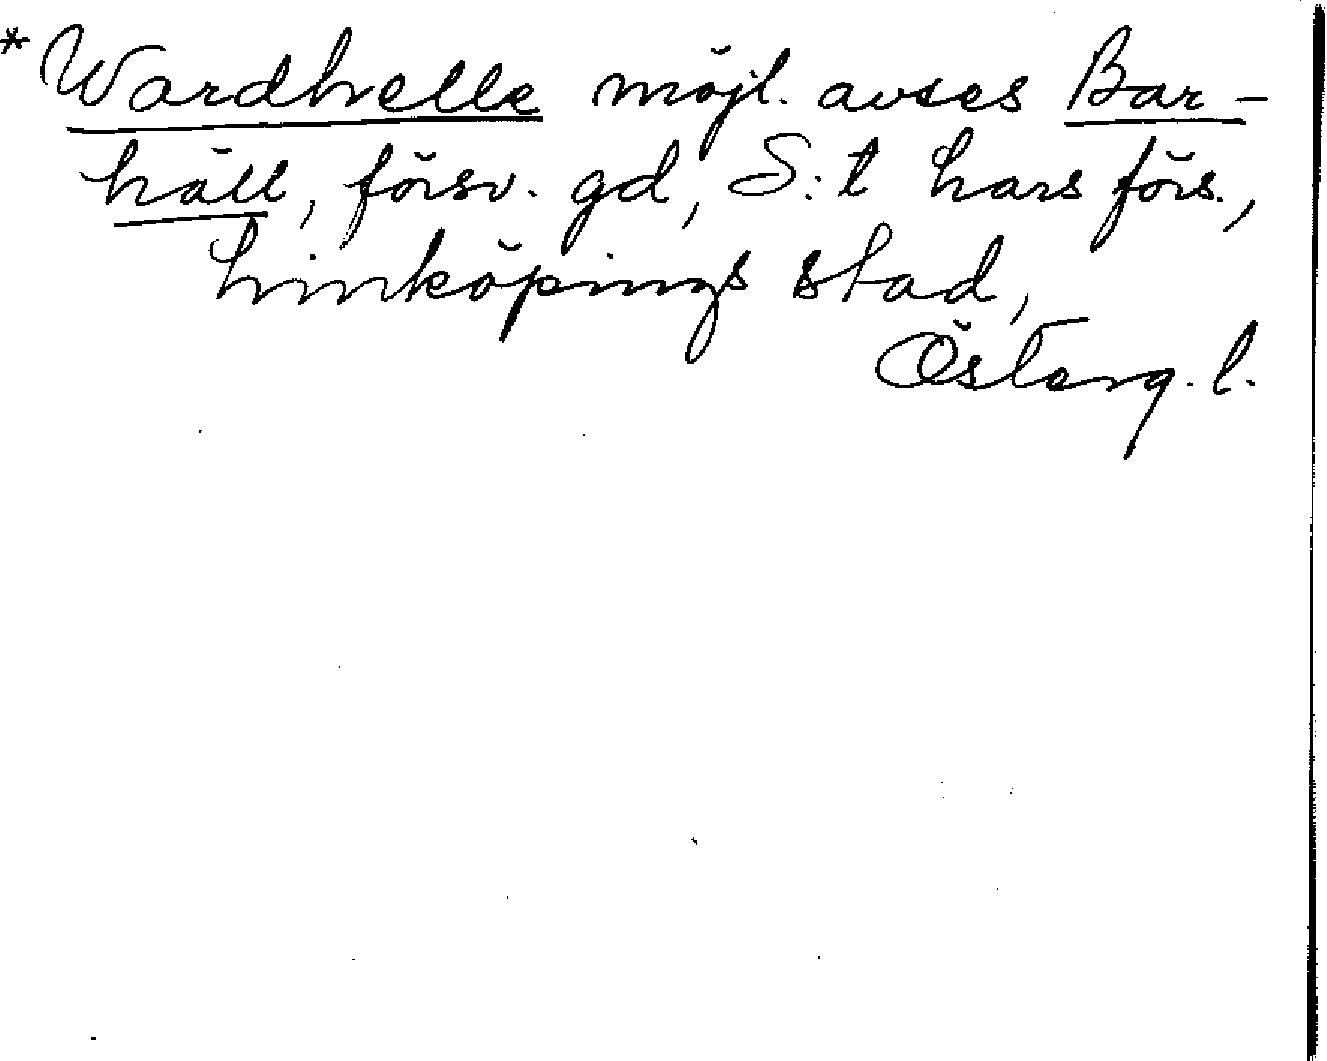 *Wardhelle möjl. avses Bar-
häll, försv. gd, S:t Lars förs.,
Linköpings stad,
Österg. l.